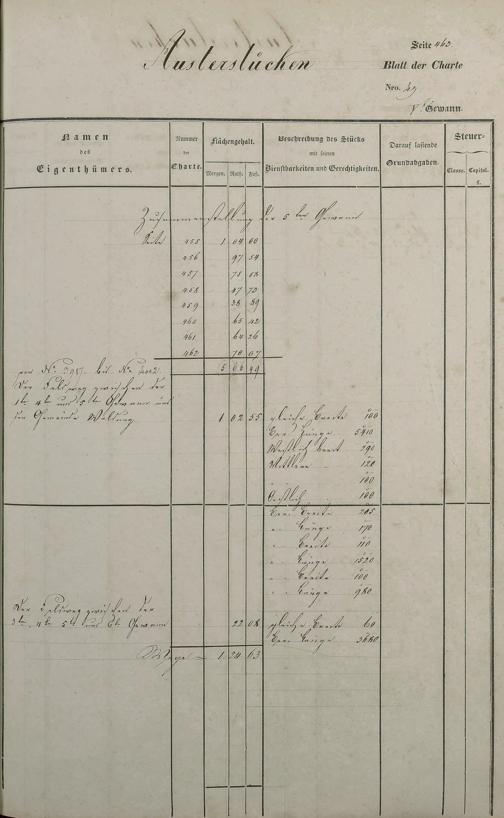 Austerstücken
Seite 463.
Blatt der Charte
Nro. 49
V te Gewann.
Namen
des
Eigenthümers.
Nummer
der
Charte.
Flächengehalt.
Morgen. Ruth. Fuß.
Beschreibung des Stücks
mit seinen
Dienstbarkeiten und Gerechtigkeiten.
Darauf lastende
Grundabgaben.
Steuer-
Classe. Capital.
Zusammenstellung der 5 ten Gewann
Seite 455 1 04 60
456 97 54
457
458
459
460 65 42
461 64 26
462 70 07
Der Feldweg zwischen der
1 ten 4 ten und 5 ten Gewann und
der Gemeinde Waldung
1 02 55 gleiche Breite 100
Länge 5410
Westlich breit 290
Mittlere 120
100
Oestlich 100
Breite 205
Länge 170
Breite 110
Länge 1520
Breite 100
Länge 980
Der Feldweg zwischen der
3 ten 4 ten 5 ten und 6 ten Gewann
22 08 gleiche Breite 60
Länge 3680
Wege 1 24 63